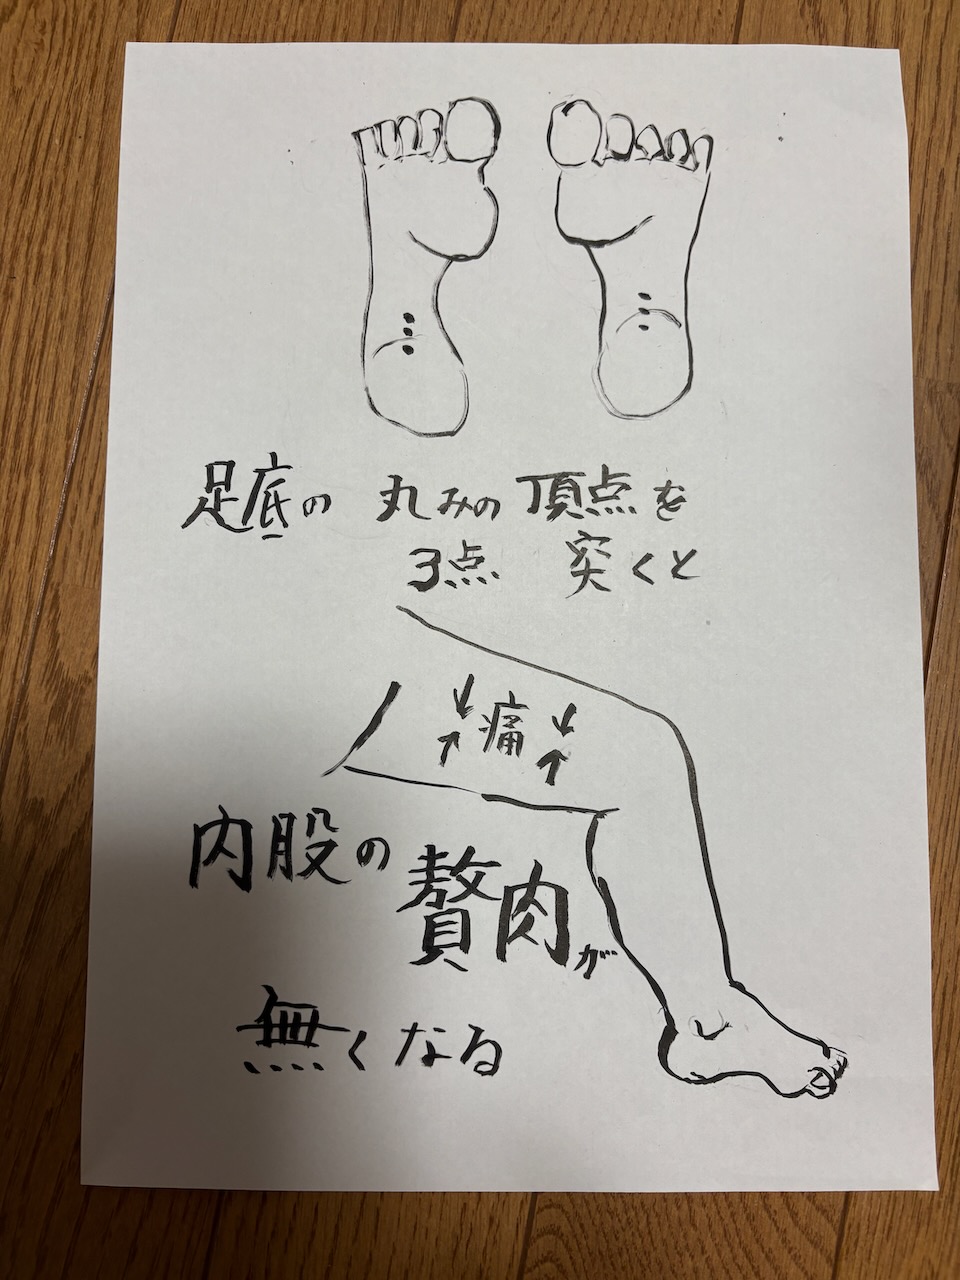 足底の 丸みの頂点を
3点 突くと
痛
内股の
贅肉が
無くなる